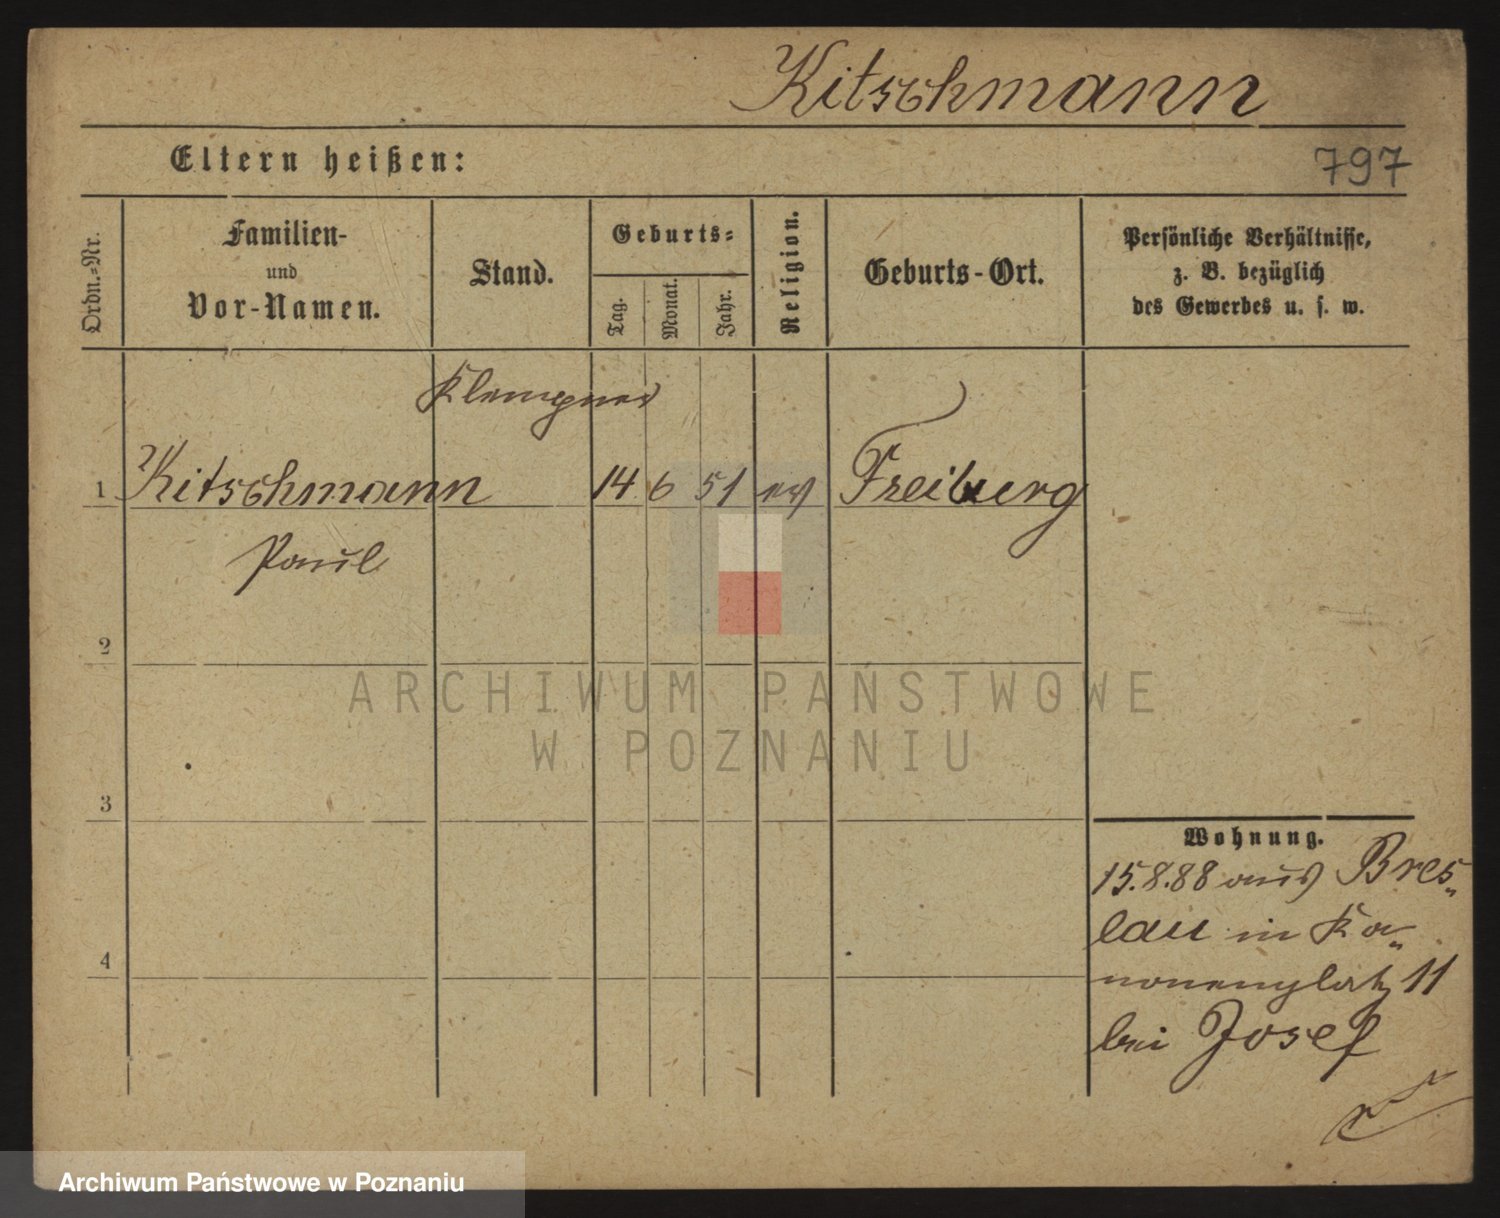 Kitschmann
Eltern heißen:
797
Ordn.-Nr.
Familien-
und
Vor-Namen.
Stand.
Geburts-
Tag.
Monat.
Jahr.
Religion.
Geburts-Ort.
Persönliche Verhältnisse,
z. B. bezüglich
des Gewerbes u. s. w.
Klempner
1 Kitschmann 14 6 51 ev Freiburg
Paul
2
ARCHIWUM PAŃSTWOWE
W POZNANIU
3
Wohnung.
15.8.88 aus Bres-
lau in Ka-
4
nonenplatz 11
bei Josef
Archiwum Państwowe w Poznaniu